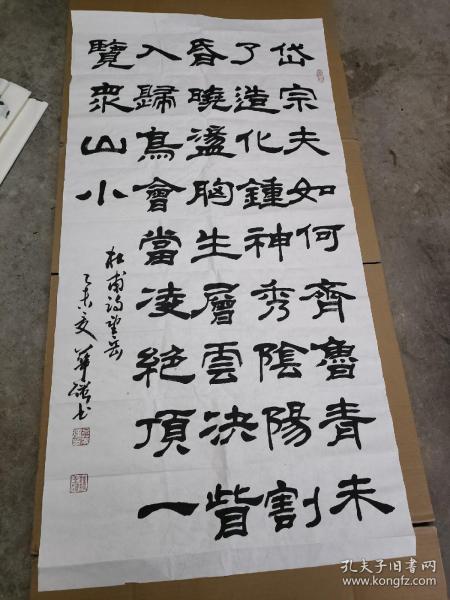 岱宗夫如何齊魯青未
了造化鍾神秀陰陽割
昏曉盪胸生層雲決眥
入歸鳥會當凌絕頂一
覽衆山小
杜甫诗望岳
乙未夏華书
孔夫子旧书网
www.kongfz.com